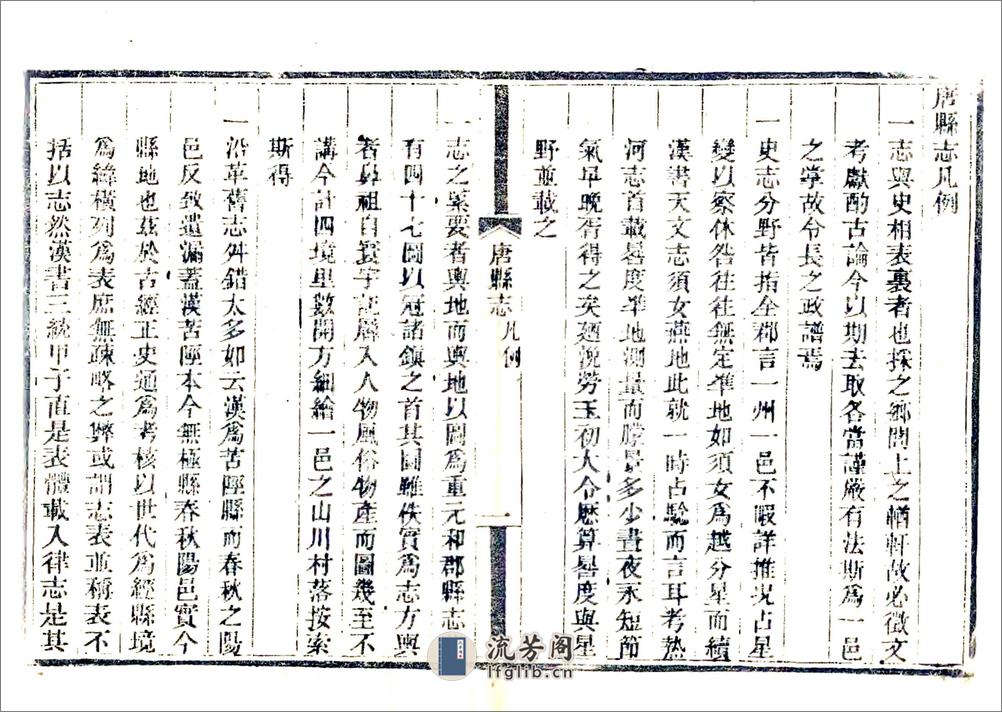 唐縣志凡例
一志與史相表裏者也採之鄉閭上之輶軒故必徵文
考獻酌古論今以期去取各當謹嚴有法斯為一邑
之掌故令長之政譜焉
一史志分野皆指全郡言一州一邑不暇詳推況占星
變以察休咎往往無定準地如須女為越分星而續
漢書天文志須女燕地此就一時占驗而言耳考熱
河志首載晷度準地測量而騰景多少晝夜永短節
氣早晚胥得之矣廼說勞玉初大令厯算晷度與星
野並載之
唐縣志 凡例 一
一志之最要者輿地而輿地以圖為重元和郡縣志
有四十七圖以冠諸鎮之首其圖雖佚實為志方輿
者鼻祖自寰宇記羼入人物風俗物產而圖幾至不
講今計四境里數開方細繪一邑之山川村落按索
斯得
一沿革舊志舛錯太多如云漢為苦陘縣而春秋之陽
邑反致遺漏蓋漢苦陘本今無極縣春秋陽邑實今
縣地也茲於古經正史通為考核以世代為經縣境
為緯橫列為表庶無疎略之弊或謂志表並稱表不
括以志然漢書三統甲子直是表體載入律志是其
流芳阁
lfglib.cn